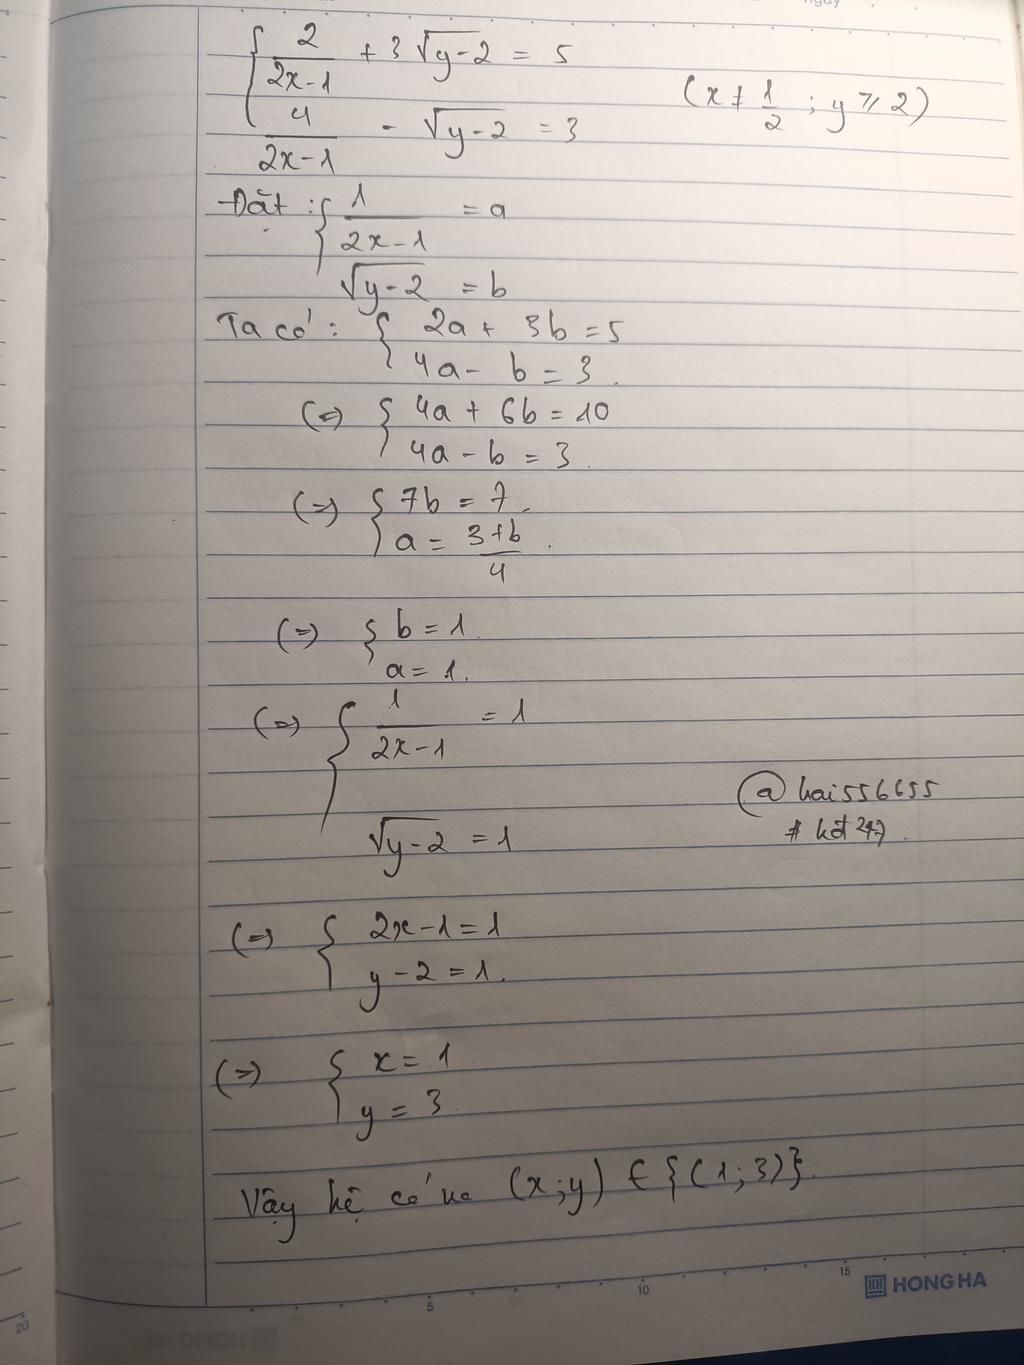 ngày
{ 2/(2x-1) + 3√(y-2) = 5
(x ≠ 1/2 ; y ≥ 2)
4/(2x-1) - √(y-2) = 3
Đặt : { 1/(2x-1) = a
√(y-2) = b
Ta có : { 2a + 3b = 5
4a - b = 3.
(=) { 4a + 6b = 10
4a - b = 3.
(=) { 7b = 7.
a = (3+b)/4.
(=) { b = 1.
a = 1.
(=) { 1/(2x-1) = 1
√(y-2) = 1
@hai556655
(=) { 2x-1 = 1
y-2 = 1.
(=) { x = 1
y = 3.
Vậy hệ có no (x;y) ∈ {(1;3)}.
5 10 15
HONG HA
20